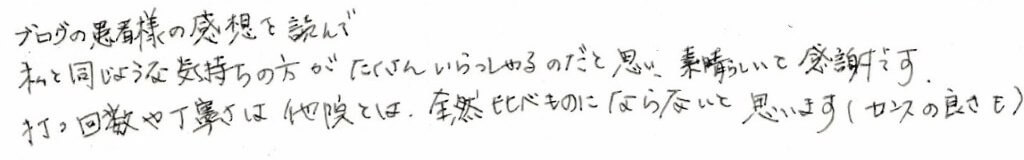 ブログの患者様の感想を読んで
私と同じような気持ちの方がたくさんいらっしゃるのだと思い、素晴らしいと感謝です.
打つ回数や丁寧さは他院とは、全然比べものにならないと思います(センスの良さも)